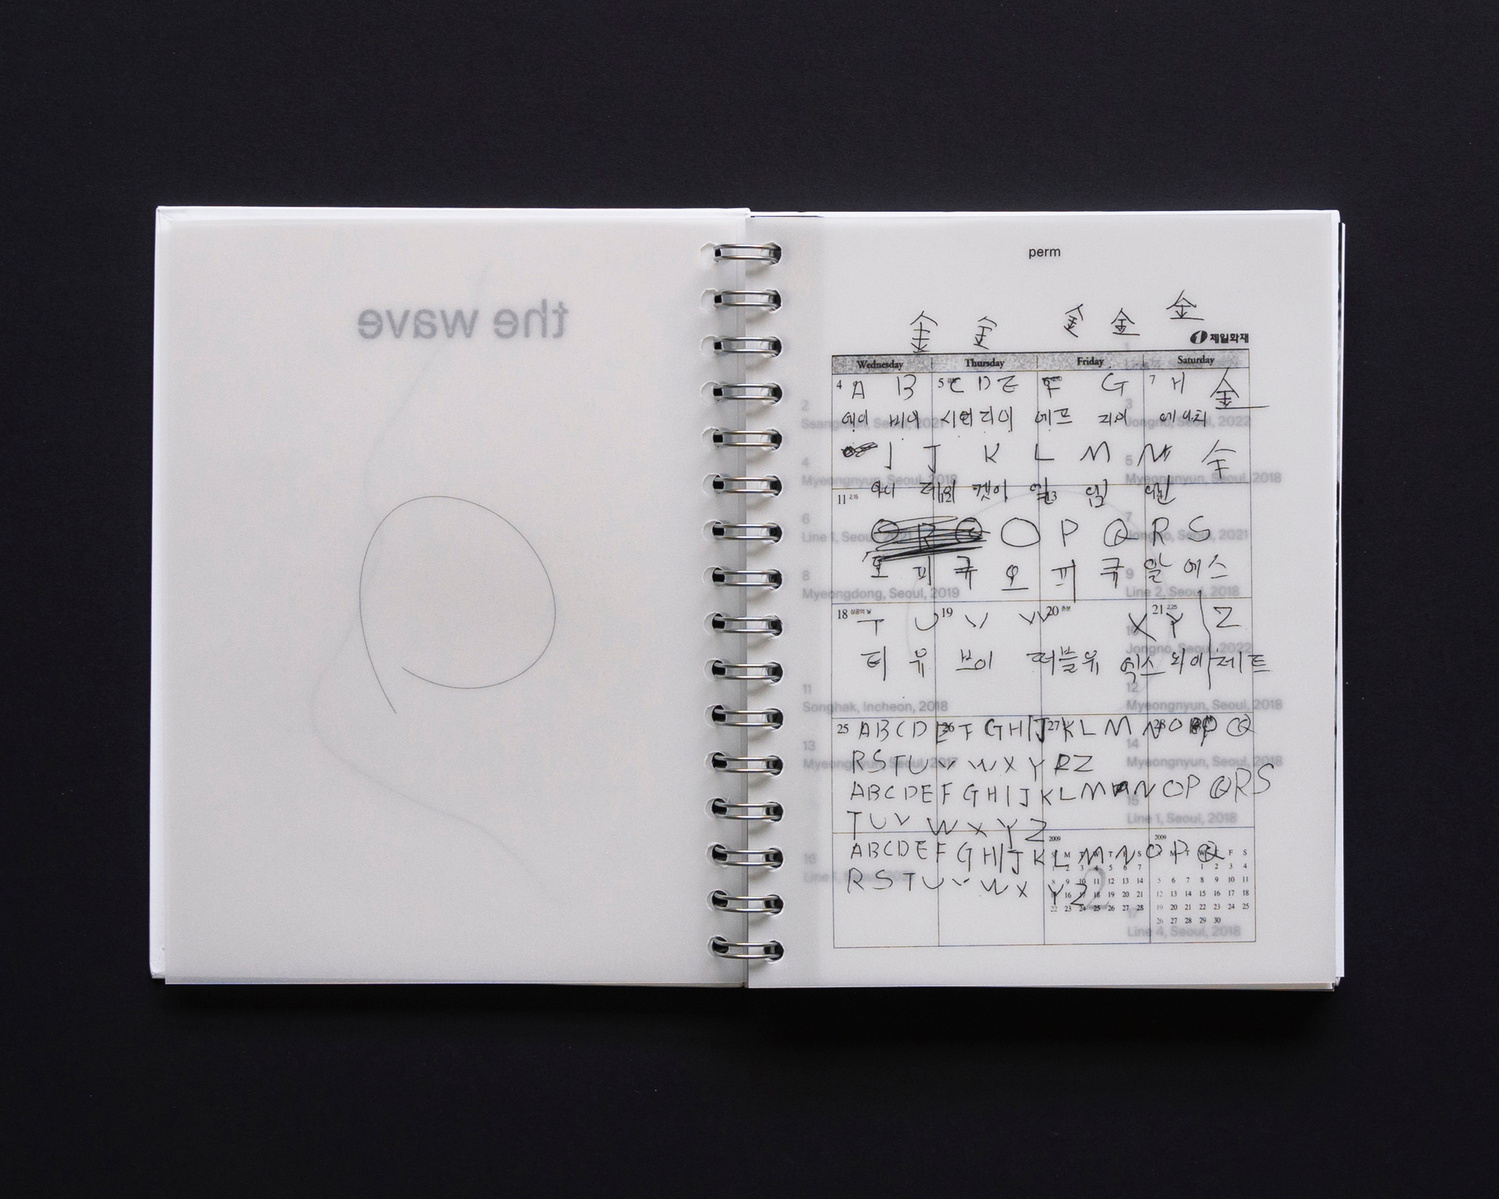 the wave
perm
金 金 金 金 金
제일화재
Wednesday Thursday Friday Saturday
4 A B 5 C D E F G 7 H 金
에이 비이 시이 디이 에프 지이 에이치
2
3
Jongno, Seoul, 2022
I J K L M N 金
4
5
Myeongnyun, Seoul, 2018
Myeongnyun, Seoul, 2018
11
아이 제이 켓이 엘 엠 엔
6
7
O P Q O P Q R S
Line 1, Seoul, 2021
Jongno, Seoul, 2021
오 피 큐 오 피 큐 알 에스
8
9
Myeongdong, Seoul, 2019
Line 2, Seoul, 2018
18 T U 19 V W 20 X 21 Y Z
10
Jongno, Seoul, 2022
티 유 브이 떠블유 엑스 와이 제트
11
12
Songhak, Incheon, 2018
Myeongnyun, Seoul, 2018
25 A B C D E 26 F G H I J 27 K L M N 28 O P Q
13
14
R S T U V W X Y Z
Myeongnyun, Seoul, 2017
Myeongnyun, Seoul, 2018
A B C D E F G H I J K L M N O P Q R S
15
Line 1, Seoul, 2018
T U V W X Y Z
A B C D E F G H I J K L M N O P Q
16
R S T U V W X Y Z
17
Line 4, Seoul, 2018